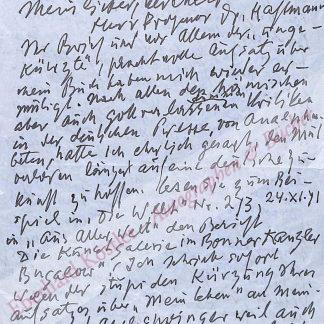 Mein lieber verehrter
Herr Professor Dr. Haftmann
Ihr Brief und vor allem der "unge-
kürzte", prachtvolle Aufsatz über
mein Buch haben mich wieder er-
mutigt. Nach allen den hämischen
aber auch gott verlassenen Kritiken
in der deutschen Presse, von
hatte ich ehrlich gesagt den Mut
verloren längst auf eine
kunft zu hoffen. Lesen Sie zum Bei-
spiel in "Die Welt" Nr. 273 24.XI.71
in "Aus aller Welt" den Bericht
Die Kunstgalerie im Bonner Kanzler
Bungalow". Ich schrieb sofort
wegen der stupiden Kürzung Ihres
Aufsatzes über "Mein Leben" an
weil auch